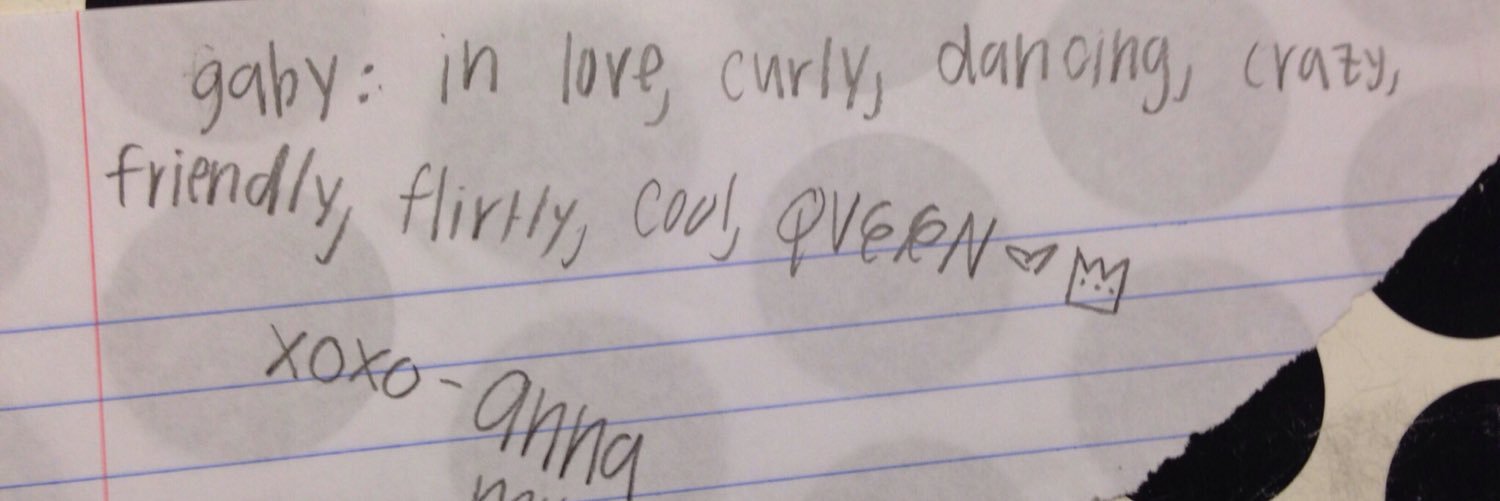 gaby: in love, curly, dancing, crazy,
friendly, flirtly, cool, QVEEN
xoxo - anna